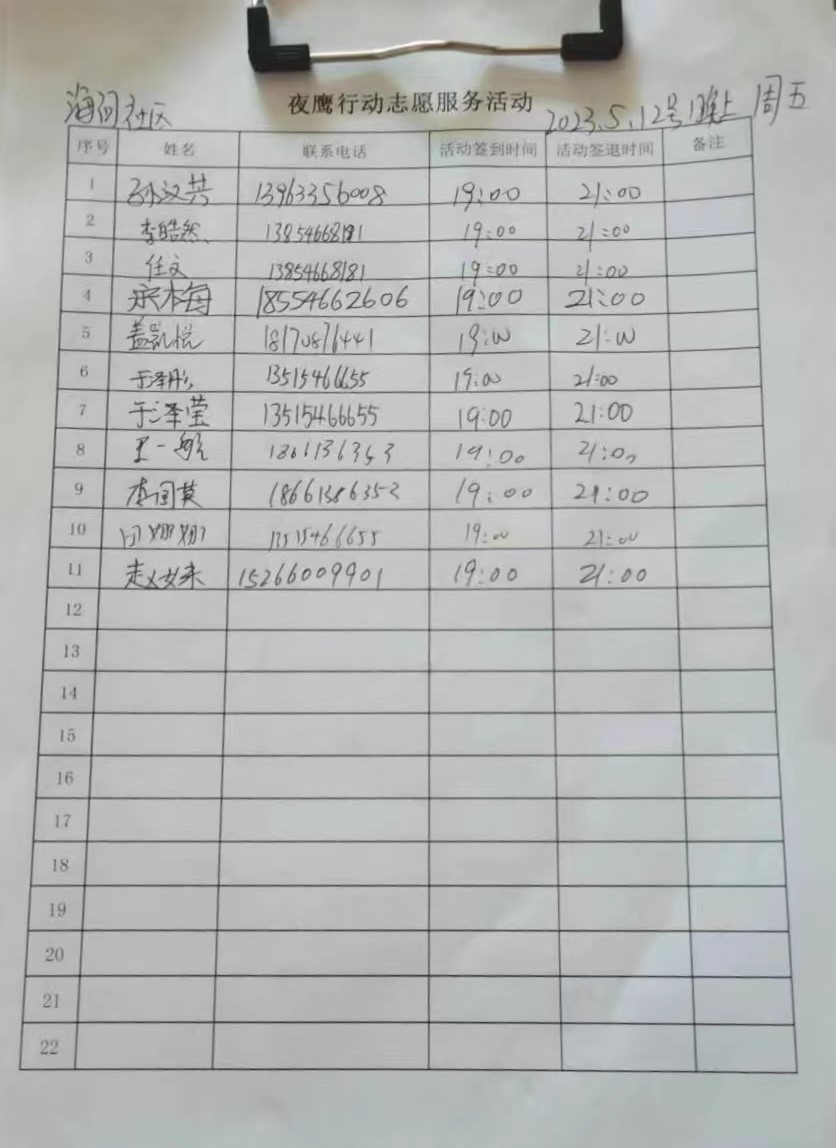 海河社区
夜鹰行动志愿服务活动
2023.5.12号晚上 周五
序号 姓名 联系电话 活动签到时间 活动签退时间 备注
1 孙汉共 13963356008 19:00 21:00
2 李皓然 13854668181 19:00 21:00
3 任文 13854668181 19:00 21:00
4 18554662606 19:00 21:00
5 盖凯悦 18170876441 19:00 21:00
6 于泽彤 13515466655 19:00 21:00
7 于泽莹 13515466655 19:00 21:00
8 王一航 19:00 21:00
9 李国英 18661386353 19:00 21:00
10 13515466655 19:00 21:00
11 15266009901 19:00 21:00
12
13
14
15
16
17
18
19
20
21
22